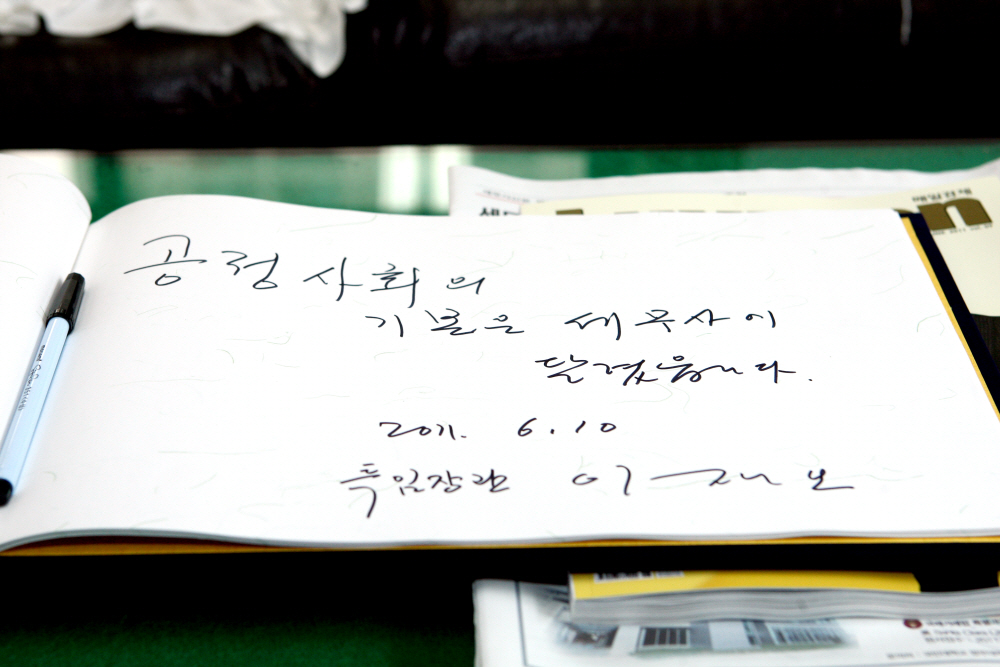 공정사회의
기본은 세무사이
달렸읍니다.
2011. 6.10
특임장관 이재오